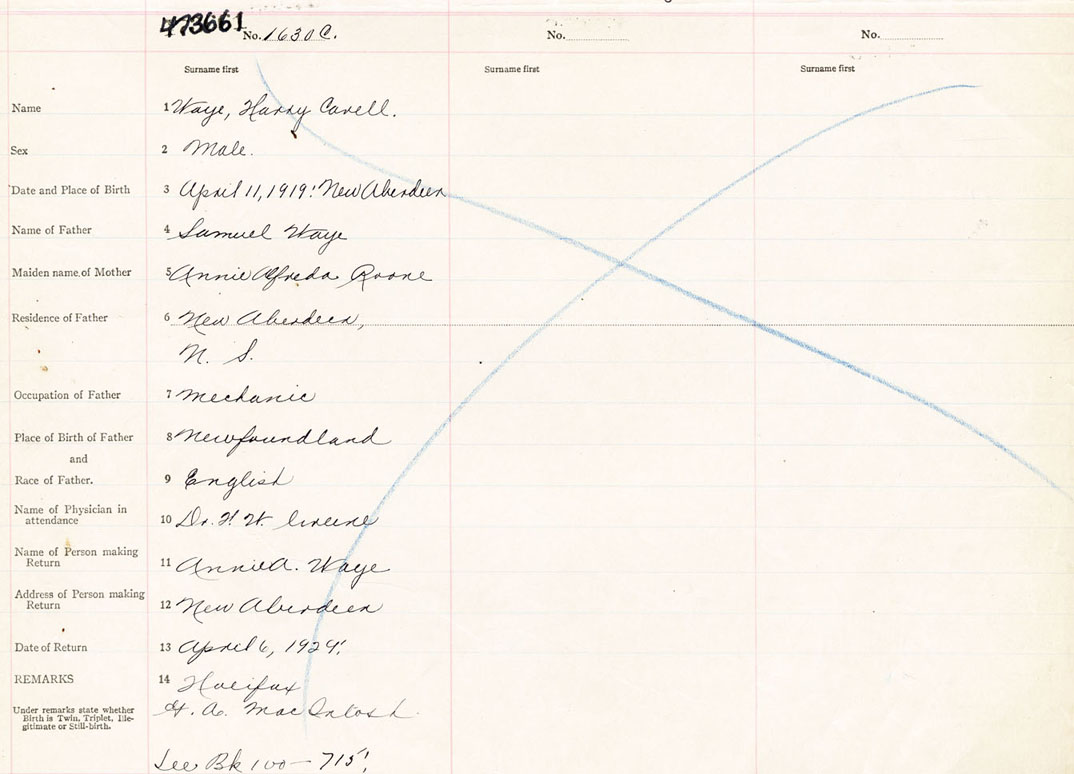 473661
No. 1630C. No. No.
Surname first Surname first Surname first
Name 1 Waye, Harry Cavell.
Sex 2 Male.
Date and Place of Birth 3 April 11, 1919. New Aberdeen
Name of Father 4 Samuel Waye
Maiden name of Mother 5 Annie Alfreda Roone
Residence of Father 6 New Aberdeen,
N. S.
Occupation of Father 7 mechanic
Place of Birth of Father 8 Newfoundland
and
Race of Father. 9 English
Name of Physician in
attendance 10 Dr. F. W. Greene
Name of Person making
Return 11 Annie A. Waye
Address of Person making
Return 12 New Aberdeen
Date of Return 13 April 6, 1929.
REMARKS 14 Halifax
Under remarks state whether
Birth is Twin, Triplet, Ille-
gitimate or Still-birth.
A. MacIntosh
See Bk 100 — 715